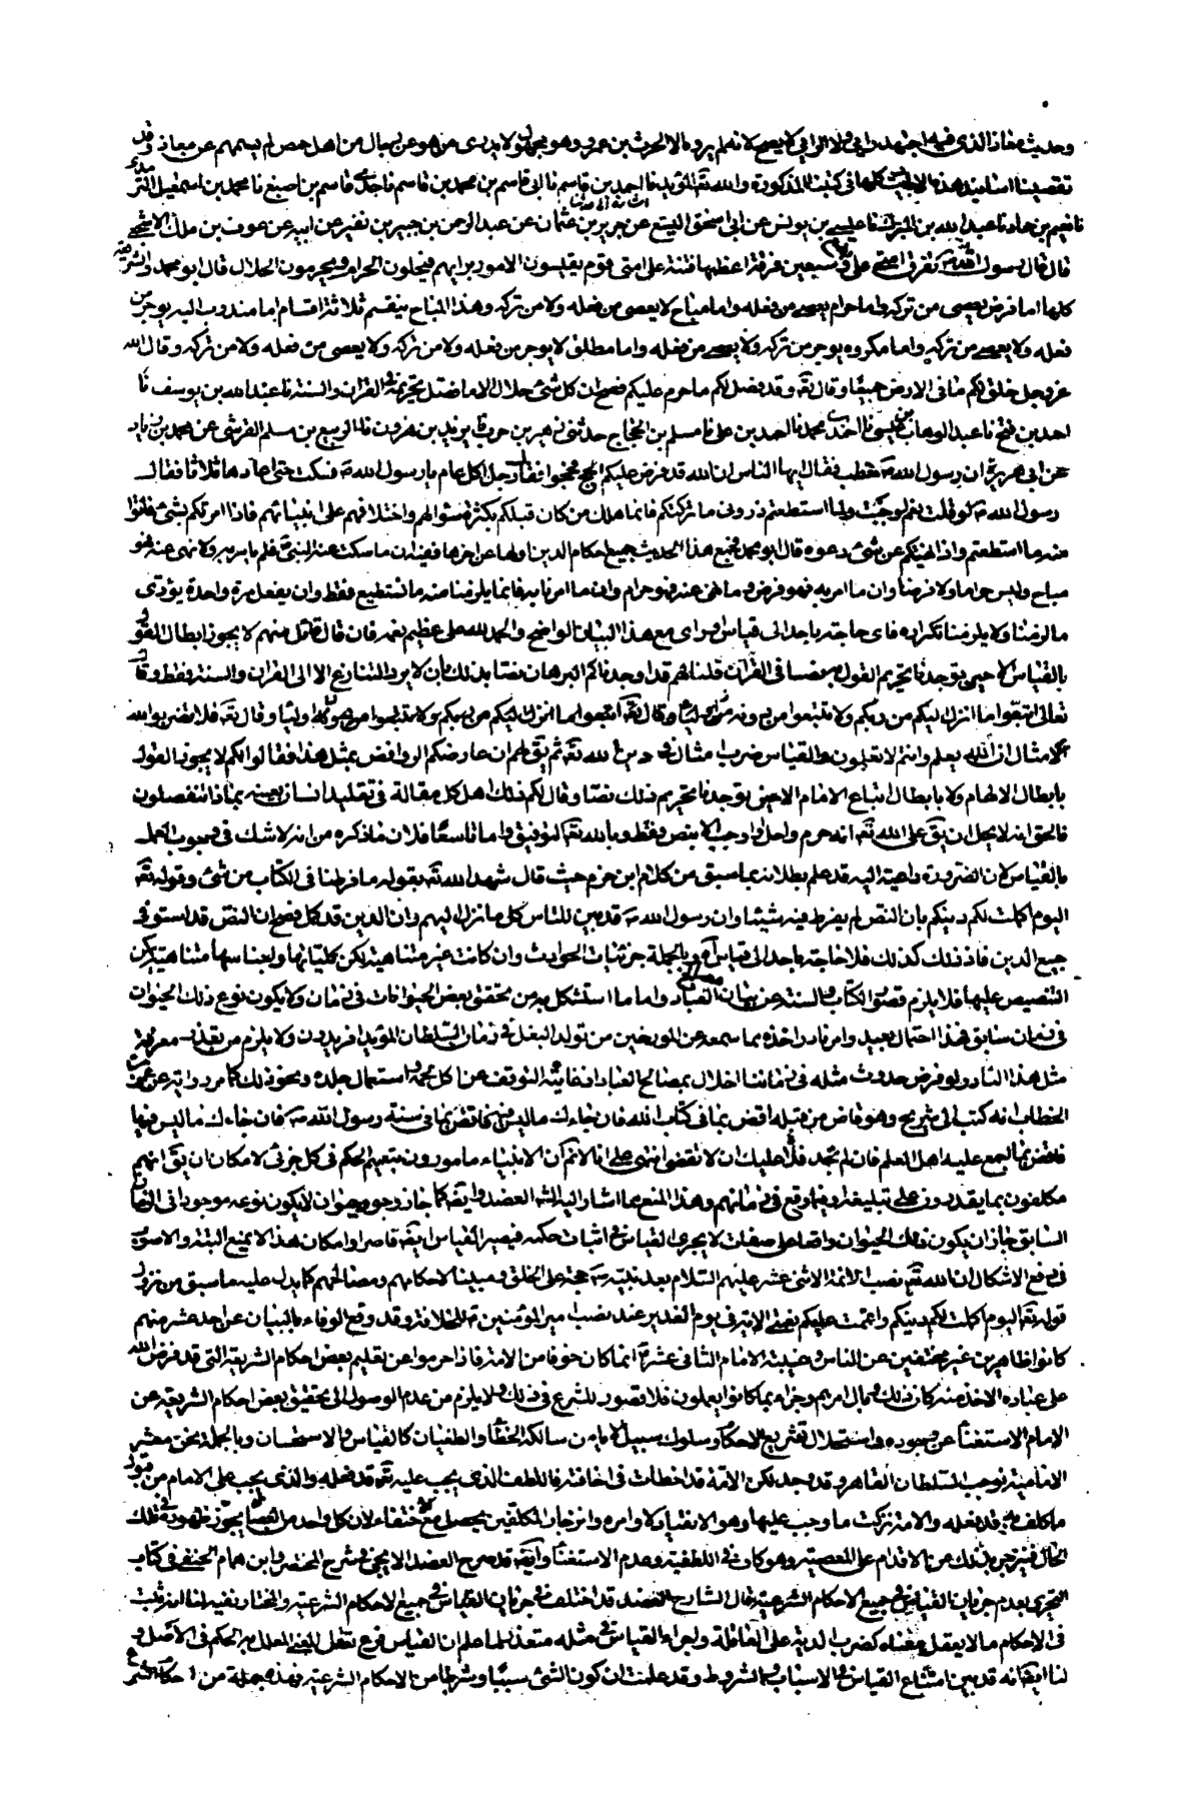 وحديث معاذ الذى فيه اجتهد رأيى ولا الوا فى لا يصح لانه لم يروه الا الحرث بن عمرو وهو مجهول ولا يدرى من هو عن رجال من اهل حمص لم يسمهم عن معاذ وقد
تقصينا اسانيد هذه الاحاديث كلها فى كتبنا المذكورة ولله تع الحمد نا احمد بن قاسم نا ابى قاسم بن محمد بن قاسم نا جدى قاسم بن اصبغ نا محمد بن اسمعيل الترمذى
نا نعيم بن حماد نا عبد الله بن المبرك نا عيسى بن يونس عن ابى اسحق السبيع عن جرير بن عثمان عن عبد الرحمن بن جبير بن نفير عن ابيه عن عوف بن ملك الاشجعى
قال قال رسول الله ص تفرق امتى على بضع وسبعين فرقة اعظمها فتنة على امتى قوم يقيسون الامور برايهم فيحلون الحرام ويحرمون الحلال قال ابو محمد والشريعة
كلها اما فرض يعصى من تركه واما حرام يعصى من فعله واما مباح لا يعصى من فعله ولا من تركه وهذا المباح ينقسم ثلاثة اقسام اما مندوب اليه يوجر من
فعله ولا يعصى من تركه واما مكروه يوجر من تركه ولا يعصى من فعله واما مطلق لا يوجر من فعله ولا من تركه ولا يعصى من فعله ولا من تركه وقال الله
عز وجل خلق لكم ما فى الارض جميعا وقال تع وقد فصل لكم ما حرم عليكم فصح ان كل شئ حلال الا ما فصل تحريمه فى القران والسنة نا عبد الله بن يوسف نا
احمد بن فتح نا عبد الوهاب بن عيسى نا احمد بن محمد نا احمد بن على نا مسلم بن الحجاج حدثنى زهير بن حرب نا يزيد بن هرون نا الربيع بن مسلم القرشى عن محمد بن زياد
عن ابى هريرة ان رسول الله ص خطب فقال ايها الناس ان الله قد فرض عليكم الحج فحجوا فقال رجل اكل عام يا رسول الله ص فسكت حتى اعادها ثلاثا فقال
رسول الله ص لو قلت نعم لوجبت ولما استطعتم ذرونى ما تركتكم فانما هلك من كان قبلكم بكثرة سؤالهم واختلافهم على انبيائهم فاذا امرتكم بشئ فاتوا
منه ما استطعتم واذا نهيتكم عن شئ فدعوه قال ابو محمد فجمع هذا الحديث جميع احكام الدين اولها عن اخرها ففيه ان ما سكت عنه النبى ص فلم يامر به ولا نهى عنه فهو
مباح وليس حراما ولا فرضا وان ما امر به فهو فرض وما نهى عنه فهو حرام وان ما امرنا به فانما يلزمنا منه ما نستطيع فقط وان يفعل مرة واحدة يؤدى
ما لزمنا ولا يلزمنا تكراره فاى حاجة باحد الى قياس او راى مع هذا البيان الواضح والحمد لله على عظيم نعمه فان قال قائل منهم لا يجوز ابطال القول
بالقياس الا حتى يوجدنا تحريم القول به نصا فى القرآن قلنا لهم قد اوجدناكم البرهان نصا بذلك بان لا يرد التنازع الا الى القران والسنة فقط وقال
تعالى اتبعوا ما انزل اليكم من ربكم ولا تتبعوا من دونه اولياء وقال تع فلا تضربوا لله
الامثال ان الله يعلم وانتم لا تعلمون والقياس ضرب امثال فى دين الله تع ثم يق لهم ان عارضكم الروافض بمثل هذا فقالوا لكم لا يجوز القول
بابطال الالهام ولا بابطال اتباع الامام الا حتى يوجدنا تحريم ذلك نصا وقال لكم ذلك اهل كل مقالة فى تقليد انسان بعينه بماذا تنفصلون
فالحق انه لا يحل ان يق على الله تع انه حرم واحل او اوجب الا بنص فقط وبالله تع التوفيق واما تاسعا فلان ما ذكره من انه لا شك فى وجوب العمل
بالقياس لان الضرورة داعية اليه قد علم بطلانه بما سبق من كلام ابن حزم حيث قال شهد الله تع بقوله ما فرطنا فى الكتاب من شئ وقوله تع
اليوم اكملت لكم دينكم بان النص لم يفرط فيه شيئا وان رسول الله ص قد بين للناس كل ما نزل اليهم وان الدين قد كمل فصح ان النص قد استوفى
جميع الدين فاذ ذلك كذلك فلا حاجة باحد الى قياس اه وبالجملة جزئيات الحوادث وان كانت غير متناهية لكن كلياتها واجناسها متناهية يمكن
التنصيص عليها فلا يلزم قصور الكتاب والسنة عن بيان مصالح العباد واما ما استشكل به من تحقق بعض الحيوانات فى زمان ولا يكون نوع ذلك الحيوان
فى زمان سابق فهذا احتمال بعيد وامر نادر اخذه مما سمعه عن المورخين من تولد البغل فى زمان السلطان المؤيد افريدون ولا يلزم من تعذر معرفة
مثل هذا النادر ولو فرض حدوث مثله فى زماننا اخلال بمصالح العباد اذ غايته التوقف عن اكل لحمه واستعمال جلده ونحو ذلك كما مر رواية عن عمر بن
الخطاب انه كتب الى شريح وهو قاض من قبله اقض بما فى كتاب الله فان جاءك ما ليس فيه فاقض بما فى سنة رسول الله ص فان جاءك ما ليس فيها
فاقض بما اجمع عليه اهل العلم فان لم تجد فلا عليك ان لا تقضى انتهى على انا لا نم ان الانبياء مامورون بتعميم الحكم فى كل جزئى لامكان ان يق انهم
مكلفون بما يقدرون على تبليغه وبما وقع فى زمانهم وهذا المنع مما اشار اليه العضد وايضا كما جاز وجود حيوان لا يكون نوعه موجودا فى الزمان
السابق جاز ان يكون ذلك الحيوان واقعا على صفات لا يجرى القياس فى اثبات حكمه فيصير القياس ايضا قاصرا وامكان هذا لا يمنع البتة والاصوب
فى دفع الاشكال ان الله تع نصب الائمة الاثنى عشر عليهم السلام بعد نبيه ص حجة على الخلق ومبينا لاحكامهم ومصالحهم كما يدل عليه ما سبق من نزول
قوله تع اليوم اكملت لكم دينكم واتممت عليكم نعمتى الاية فى يوم الغدير عند نصب امير المؤمنين ع للخلافة وقد وقع الوفاء بالبيان عن احد عشر منهم
كانوا ظاهرين غير مختفين عن الناس وغيبة الامام الثانى عشر ع انما كان خوفا من الامة فاذا حرموا عن تعليم بعض احكام الشريعة التى قد فرض الله
على عباده الاخذ منه كان ذلك وبال امرهم وجزاء بما كانوا يعملون فلا قصور للشرع فى ذلك ولا يلزم من عدم الوصول الى تحقيق بعض احكام الشريعة عن
الامام الاستغناء عن وجوده واستحلال تشريع الاحكام وسلوك سبيل لا يامن سالكه الخطأ والطغيان كالقياس والاستحسان وبالجملة نحن معشر
الامامية نوجب السلطان القاهر وقد وجد لكن الامة قد اخطات فى اخافته فاللطف الذى يجب عليه تع قد فعله والذى يجب على الامام من قبول
ما كلف به قد فعله والامة تركت ما وجب عليها وهو الانقياد لاوامره وانزجار المكلفين يحصل مع اختفاءه لان كل واحد من العصاة يجوز ظهوره فى ذلك
الحال فينزجر بذلك عن الاقدام على المعصية وهو كاف فى اللطفية وعدم الاستغناء وايضا قد صرح العضد الايجى فى شرح المختصر وابن همام الحنفى فى كتاب
التحرير بعدم جريان القياس فى جميع الاحكام الشرعية قال الشارح العضد قد اختلف فى جريان القياس فى جميع الاحكام الشرعية والمختار نفيه لنا انه ثبت
فى الاحكام ما لا يعقل معناه كضرب الدية على العاقلة واجراء القياس فى مثله متعذر لما علم ان القياس فرع تعقل المعنى المعلل به الحكم فى الاصل و
لنا ايضا انه قد تبين امتناع القياس فى الاسباب والشروط وقد علمت ان كون الشئ سببا وشرطا من الاحكام الشرعية فهذه جملة من احكام الشرع